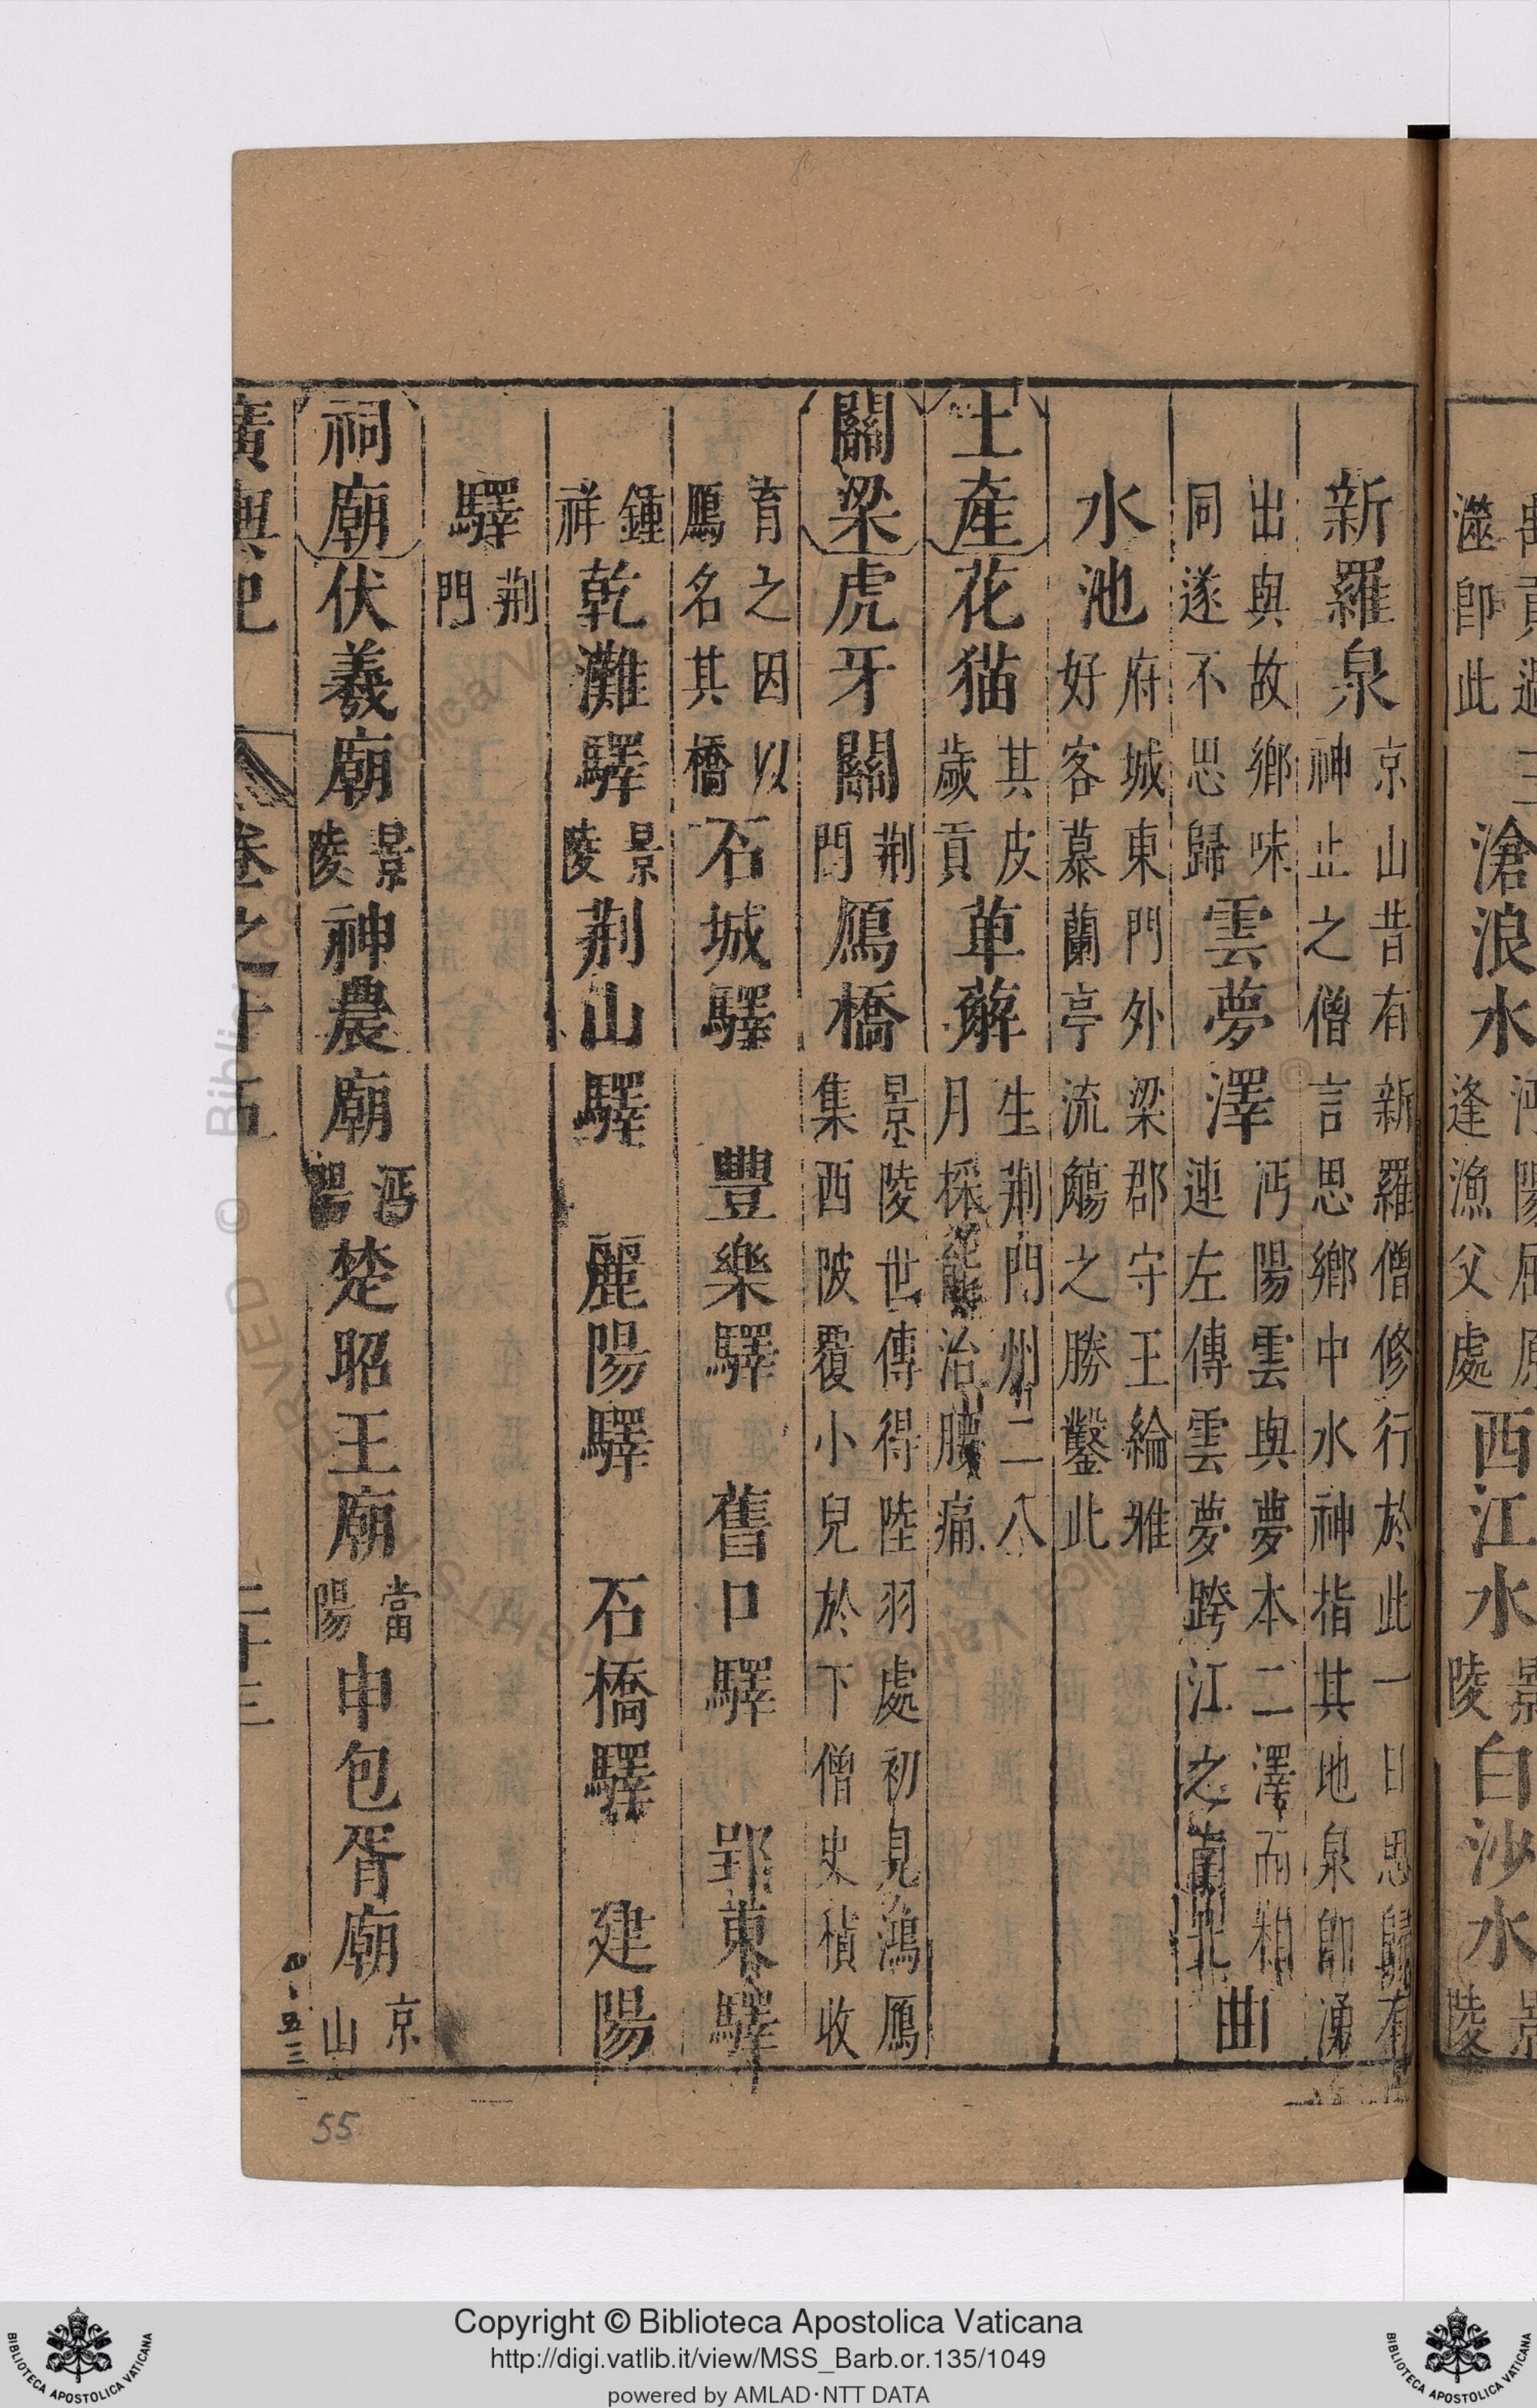 滄浪水
西江水
白沙水
新羅泉京山昔有新羅僧修行於此一日思歸有神止之僧言思鄉中水神指其地泉卽湧
出與故鄉味同遂不思歸雲夢澤沔陽雲與夢本二澤而相連左傳雲夢跨江之南北曲
水池府城東門外梁郡守王綸雅好客慕蘭亭流觴之勝鑿此
土產花猫其皮歲貢萆薢生荆門州二八月採能治腰痛
關梁虎牙關荆門鴈橋景陵世傳得陸羽處初見鴻鴈集西陂覆小兒於下僧史積收
育之因以鴈名其橋石城驛 豐樂驛 舊口驛 郢東驛
鍾祥乾灘驛景陵荆山驛 麗陽驛 石橋驛 建陽
驛荆門
祠廟伏羲廟景陵神農廟沔陽楚昭王廟當陽申包胥廟京山
廣輿記 卷之十五 二十三
四、五三
55
Copyright © Biblioteca Apostolica Vaticana
http://digi.vatlib.it/view/MSS_Barb.or.135/1049
powered by AMLAD·NTT DATA
BIBLIOTECA APOSTOLICA VATICANA
BIBLIOTECA APOSTOLICA VATICANA